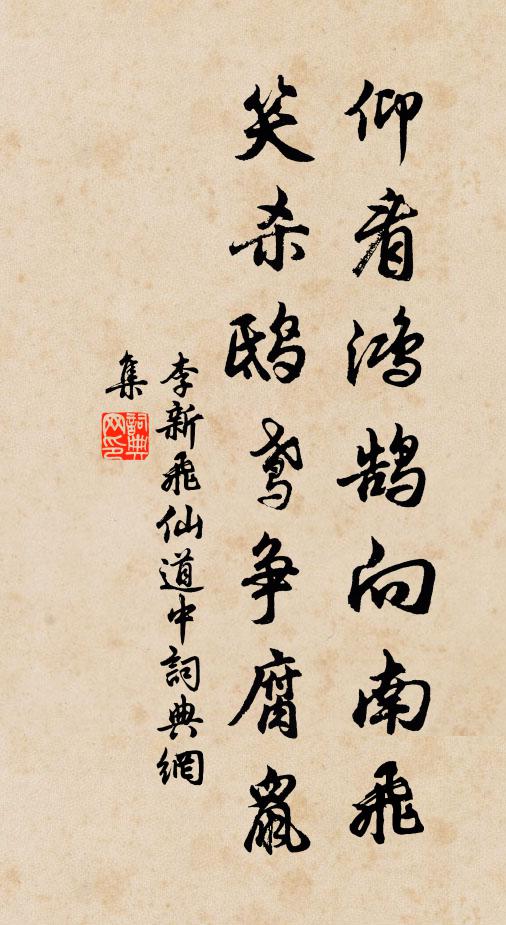 仰看鸿鹄向南飛
笑杀鸱鸢争腐鼠
李新飛仙道中詞典網
集
詞典
网印